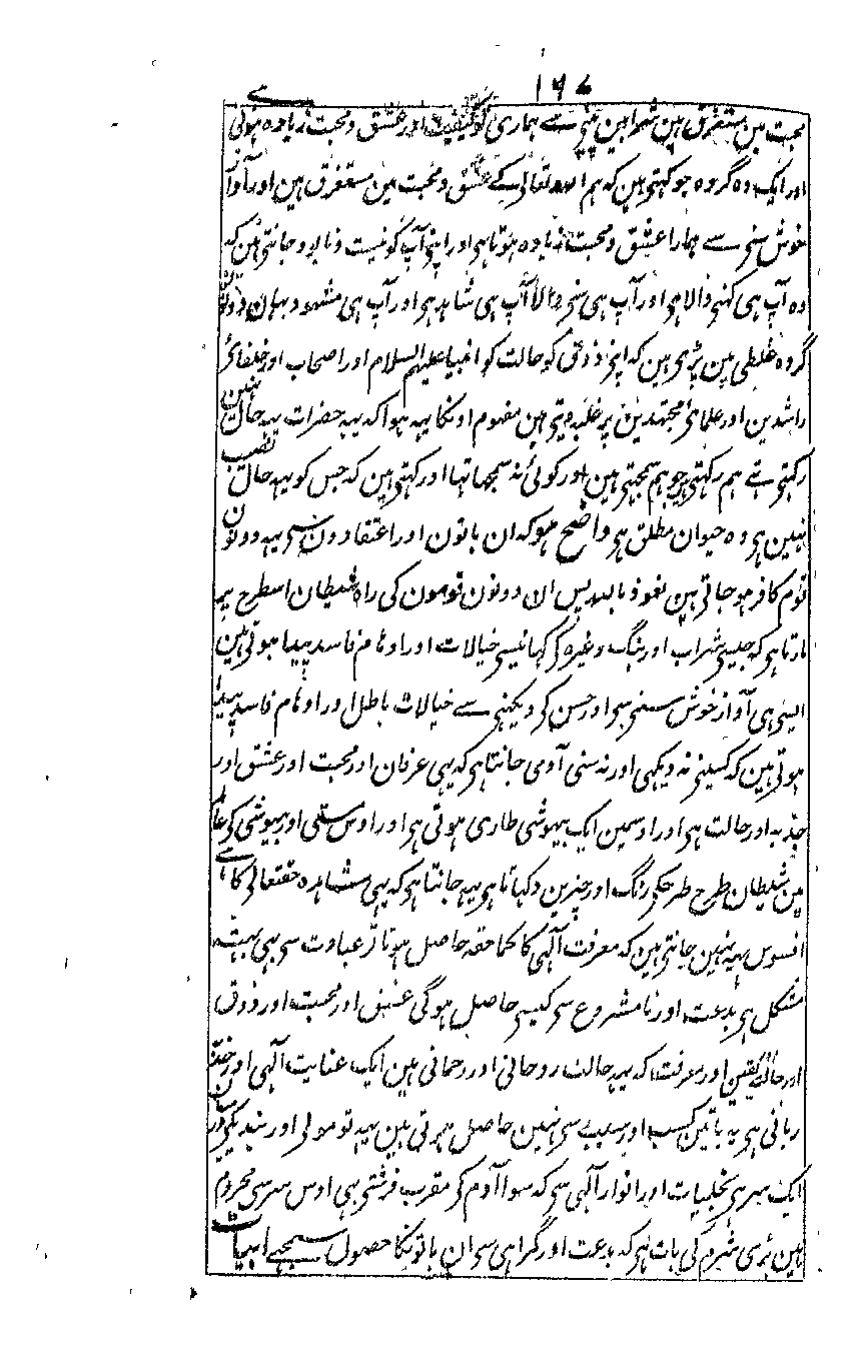 ۱۶۷
محبت مین مستغرق ہین شراب پینے سے ہماری کو کیفیت اور عشق و محبت زیادہ ہوتی ہے
اور ایک وہ گروہ جو کہتی ہین کہ ہم اللہ تعالی کے عشق و محبت مین مستغرق ہین اور آواز
خوش سنی سے ہمارا عشق و محبت زیادہ ہوتا ہی اور اپنی آپ کو نیست و نابود جانتی ہین کہ
وہ آپ ہی کہنی والا ہی اور آپ ہی سنی والا آپ ہی شاہد ہی اور آپ ہی مشہود یہان دونون
گروہ غلطی مین پڑی ہین کہ اپنی ذوق کو حالت کو انبیا علیہم السلام اور اصحاب اور خلفائی
راشدین اور علمائی مجتہدین پر غلبہ دیتی ہین مفہوم اونکا یہہ ہوا کہ یہہ حضرات یہہ حال نہین
رکہتی تہے ہم رکہتی ہین جو ہم سمجہتی ہین اور کوئی نہ سمجہا تہا اور کہتی ہین کہ جس کو یہہ حال نصیب
نہین ہی وہ حیوان مطلق ہی واضح ہو کہ ان باتون اور اعتقادون سی یہہ دونون
قوم کافر ہو جاتی ہین نعوذ باللہ پس ان دونون قومون کی راہ شیطان اسطرح پر
مارتا ہی کہ جیسی شراب اور بنگ وغیرہ کی کہانیسی خیالات اور اوہام فاسد پیدا ہوتی ہین
ایسی ہی آواز خوش سننی سی اور حسن کی دیکہنی سے خیالات باطل اور اوہام فاسد پیدا
ہوتی ہین کہ کسینی نہ دیکہی اور نہ سنی آدمی جانتا ہی کہ یہی عرفان اور محبت اور عشق اور
جذبہ اور حالت ہی اور اوسمین ایک بیہوشی طاری ہوتی ہی اور اوس مستی اور بیہوشی کی عالم
مین شیطان طرح طرحکی رنگ اور چیزین دکہاتا ہی یہہ جانتا ہی کہ یہی مشاہدہ حقتعالی کا ہے
افسوس یہہ نہین جانتی ہین کہ معرفت آلہی کا کماحقہ حاصل ہونا تو عبادت سی بہی بہت
مشکل ہی بدعت اور نامشروع سی کیسی حاصل ہوگی عشق اور محبت اور ذوق
اور حالت یقین اور معرفت کہ یہہ حالت روحانی اور رحمانی ہین ایک عنایت آلہی اور
ربانی ہی یہ باتین کسب اور سبب سی نہین حاصل ہوتی ہین یہہ تو مولی اور بندیکی درمیان
ایک سر ہی تجلیات اور انوار آلہی سی کہ سوا آدم کی مقرب فرشتی بہی اوس سر سی محروم
ہین بڑی شرم کی بات ہی کہ بدعت اور گمراہی سی ان باتونکا حصول سمجہے ابیات